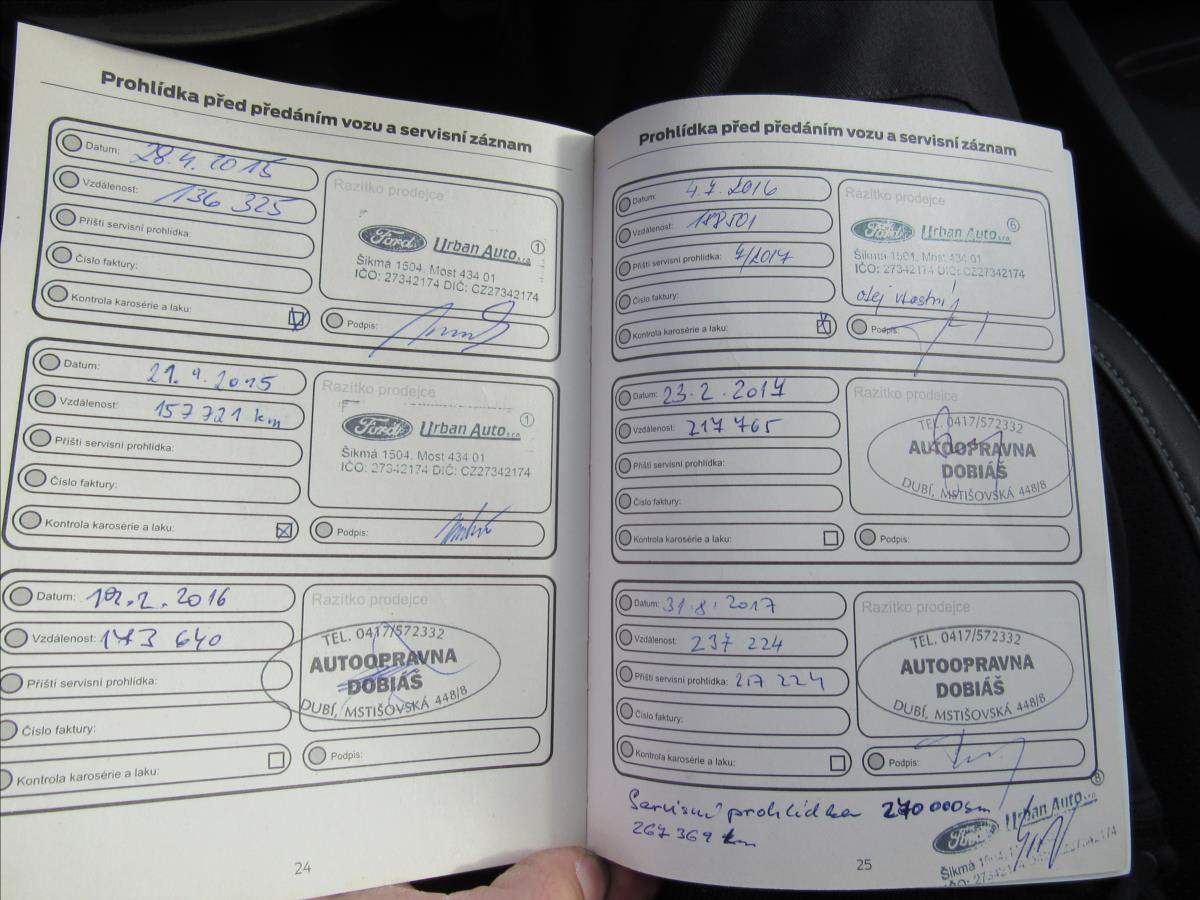 Prohlídka před předáním vozu a servisní záznam
Datum: 28.4.2015
Vzdálenost: 136 325
Příští servisní prohlídka:
Číslo faktury:
Kontrola karosérie a laku:
Razítko prodejce
Ford Urban Auto s.r.o. 1
Šikmá 1504, Most 434 01
IČO: 27342174 DIČ: CZ27342174
Podpis:
Datum: 21.9.2015
Vzdálenost: 157 721 km
Příští servisní prohlídka:
Číslo faktury:
Kontrola karosérie a laku:
Razítko prodejce
Ford Urban Auto s.r.o. 1
Šikmá 1504, Most 434 01
IČO: 27342174 DIČ: CZ27342174
Podpis:
Datum: 2016
Vzdálenost: 173 640
Příští servisní prohlídka:
Číslo faktury:
Kontrola karosérie a laku:
Razítko prodejce
TEL. 0417/572332
AUTOOPRAVNA
DOBIÁŠ
DUBÍ, MSTIŠOVSKÁ 448/8
Podpis:
24
Prohlídka před předáním vozu a servisní záznam
Datum: 4.7.2016
Vzdálenost:
Příští servisní prohlídka: 7/2017
Číslo faktury:
Kontrola karosérie a laku:
Razítko prodejce
Ford Urban Auto s.r.o. 6
Šikmá 1504, Most 434 01
IČO: 27342174 DIČ: CZ27342174
olej vlastní
Podpis:
Datum: 23.2.2017
Vzdálenost: 217 765
Příští servisní prohlídka:
Číslo faktury:
Kontrola karosérie a laku:
Razítko prodejce
TEL. 0417/572332
AUTOOPRAVNA
DOBIÁŠ
DUBÍ, MSTIŠOVSKÁ 448/8
Podpis:
Datum: 31.8.2017
Vzdálenost: 237 224
Příští servisní prohlídka: 217 224
Číslo faktury:
Kontrola karosérie a laku:
Razítko prodejce
TEL. 0417/572332
AUTOOPRAVNA
DOBIÁŠ
DUBÍ, MSTIŠOVSKÁ 448/8
Podpis:
Servisní prohlídka 270 000km
267 369 km
Ford Urban Auto s.r.o. 8
Šikmá
25